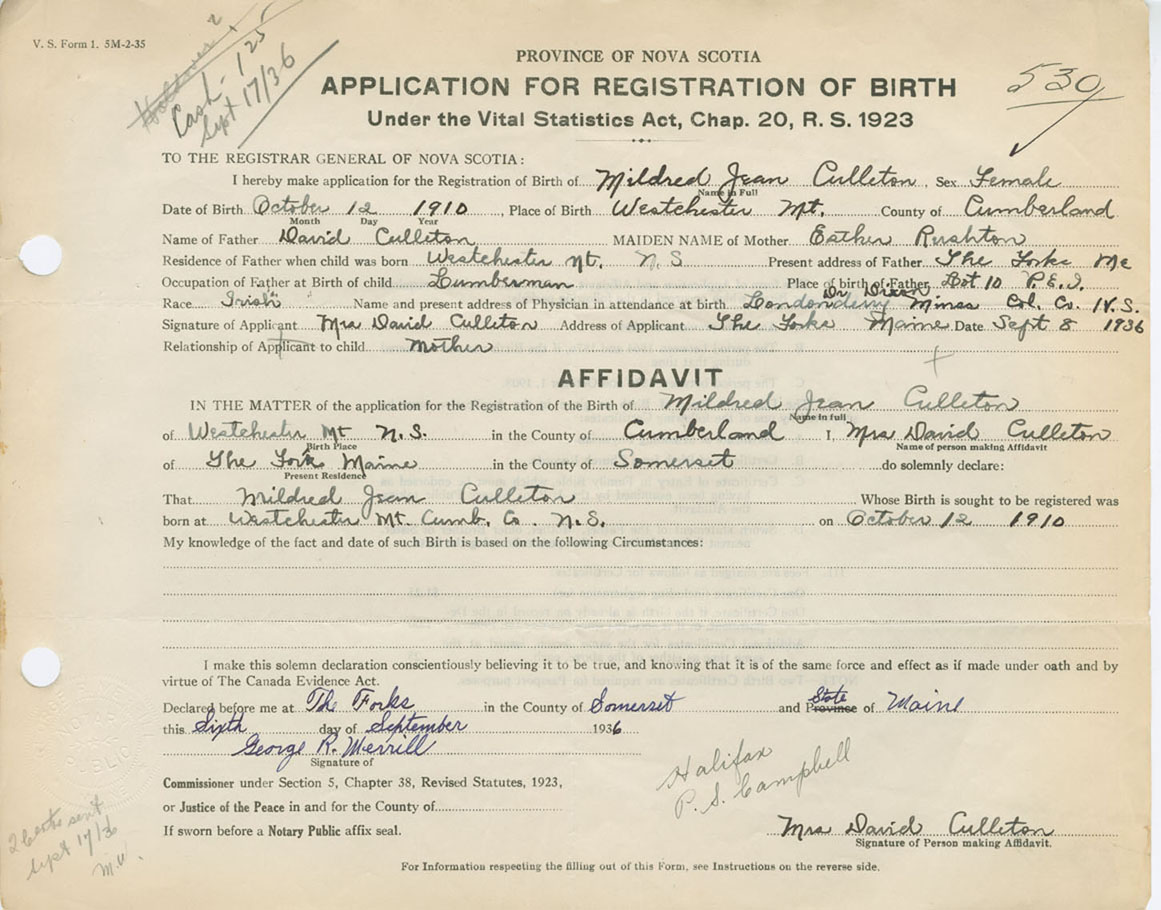 V. S. Form 1. 5M-2-35
Cash - 1 25
Sept 17/36
PROVINCE OF NOVA SCOTIA
APPLICATION FOR REGISTRATION OF BIRTH
530
Under the Vital Statistics Act, Chap. 20, R. S. 1923
TO THE REGISTRAR GENERAL OF NOVA SCOTIA:
I hereby make application for the Registration of Birth of Mildred Jean Culleton, Sex Female
Name in Full
Date of Birth October 12 1910, Place of Birth Westchester Mt. County of Cumberland
Month Day Year
Name of Father David Culleton MAIDEN NAME of Mother Esther Rushton
Residence of Father when child was born Westchester Mt. N. S Present address of Father The Forks Me
Occupation of Father at Birth of child Lumberman Place of birth of Father Lot 10 P.E.I.
Race Irish Name and present address of Physician in attendance at birth Dr Londonderry Mines Col. Co. N.S.
Signature of Applicant Mrs David Culleton Address of Applicant The Forks Maine Date Sept. 8 1936
Relationship of Applicant to child Mother
AFFIDAVIT
IN THE MATTER of the application for the Registration of the Birth of Mildred Jean Culleton
Name in full
of Westchester Mt N.S. in the County of Cumberland I, Mrs David Culleton
Birth Place Name of person making Affidavit
of The Forks Maine in the County of Somerset do solemnly declare:
Present Residence
That Mildred Jean Culleton Whose Birth is sought to be registered was
born at Westchester Mt. Cumb. Co. N.S. on October 12 1910
My knowledge of the fact and date of such Birth is based on the following Circumstances:
I make this solemn declaration conscientiously believing it to be true, and knowing that it is of the same force and effect as if made under oath and by
virtue of The Canada Evidence Act.
Declared before me at The Forks in the County of Somerset and Province State of Maine
this Sixth day of September 1936
George R. Merrill
Signature of
Halifax
P. S. Campbell
Commissioner under Section 5, Chapter 38, Revised Statutes, 1923,
or Justice of the Peace in and for the County of
If sworn before a Notary Public affix seal.
Mrs David Culleton
Signature of Person making Affidavit.
2 Certs sent
Sept 17/36
M.W.
For Information respecting the filling out of this Form, see Instructions on the reverse side.